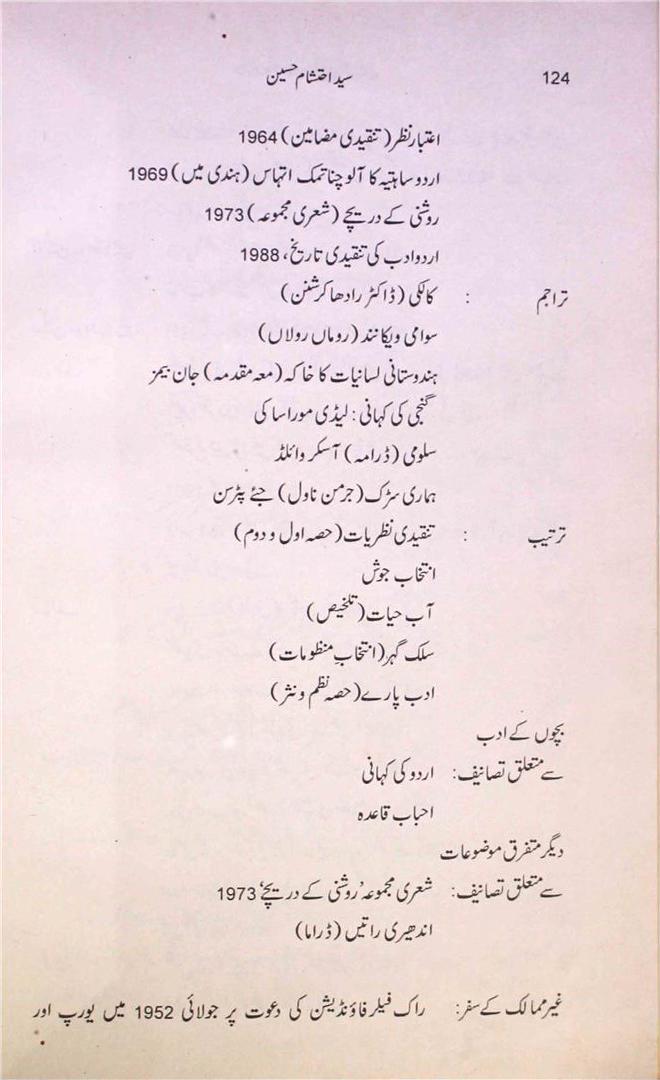 124 سید احتشام حسین
اعتبار نظر (تنقیدی مضامین) 1964
اردو ساہتیہ کا آلوچناتمک اتہاس (ہندی میں) 1969
روشنی کے دریچے (شعری مجموعہ) 1973
اردو ادب کی تنقیدی تاریخ، 1988
تراجم : کالکی (ڈاکٹر رادھا کرشنن)
سوامی ویکانند (روماں رولاں)
ہندوستانی لسانیات کا خاکہ (معہ مقدمہ) جان بیمز
گنجی کی کہانی : لیڈی موراسا کی
سلومی (ڈرامہ) آسکر وائلڈ
ہماری سڑک (جرمن ناول) جئے پٹرسن
ترتیب : تنقیدی نظریات (حصہ اول و دوم)
انتخاب جوش
آب حیات (تلخیص)
سلک گہر (انتخابِ منظومات)
ادب پارے (حصہ نظم و نثر)
بچوں کے ادب
سے متعلق تصانیف: اردو کی کہانی
احباب قاعدہ
دیگر متفرق موضوعات
سے متعلق تصانیف: شعری مجموعہ 'روشنی کے دریچے' 1973
اندھیری راتیں (ڈراما)
غیر ممالک کے سفر: راک فیلر فاؤنڈیشن کی دعوت پر جولائی 1952 میں یورپ اور